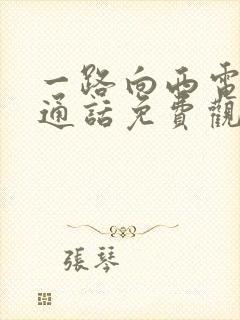 一路向西電
通話免費觀
張琴